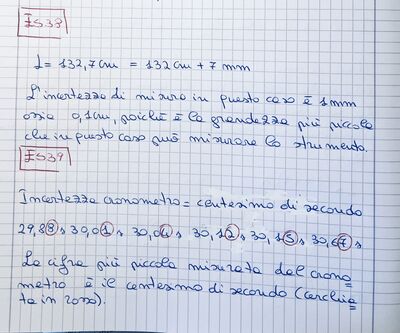 Es38
L = 132,7cm = 132cm + 7 mm
L'incertezza di misura in questo caso è 1mm
ossia 0,1cm, poiché è la grandezza più piccola
che in questo caso può misurare lo strumento.
Es39
Incertezza cronometro = centesimo di secondo
29,88s 30,01s 30,04s 30,12s 30,15s 30,67s
La cifra più piccola misurata dal crono
metro è il centesimo di secondo (cerchia
ta in rosso).